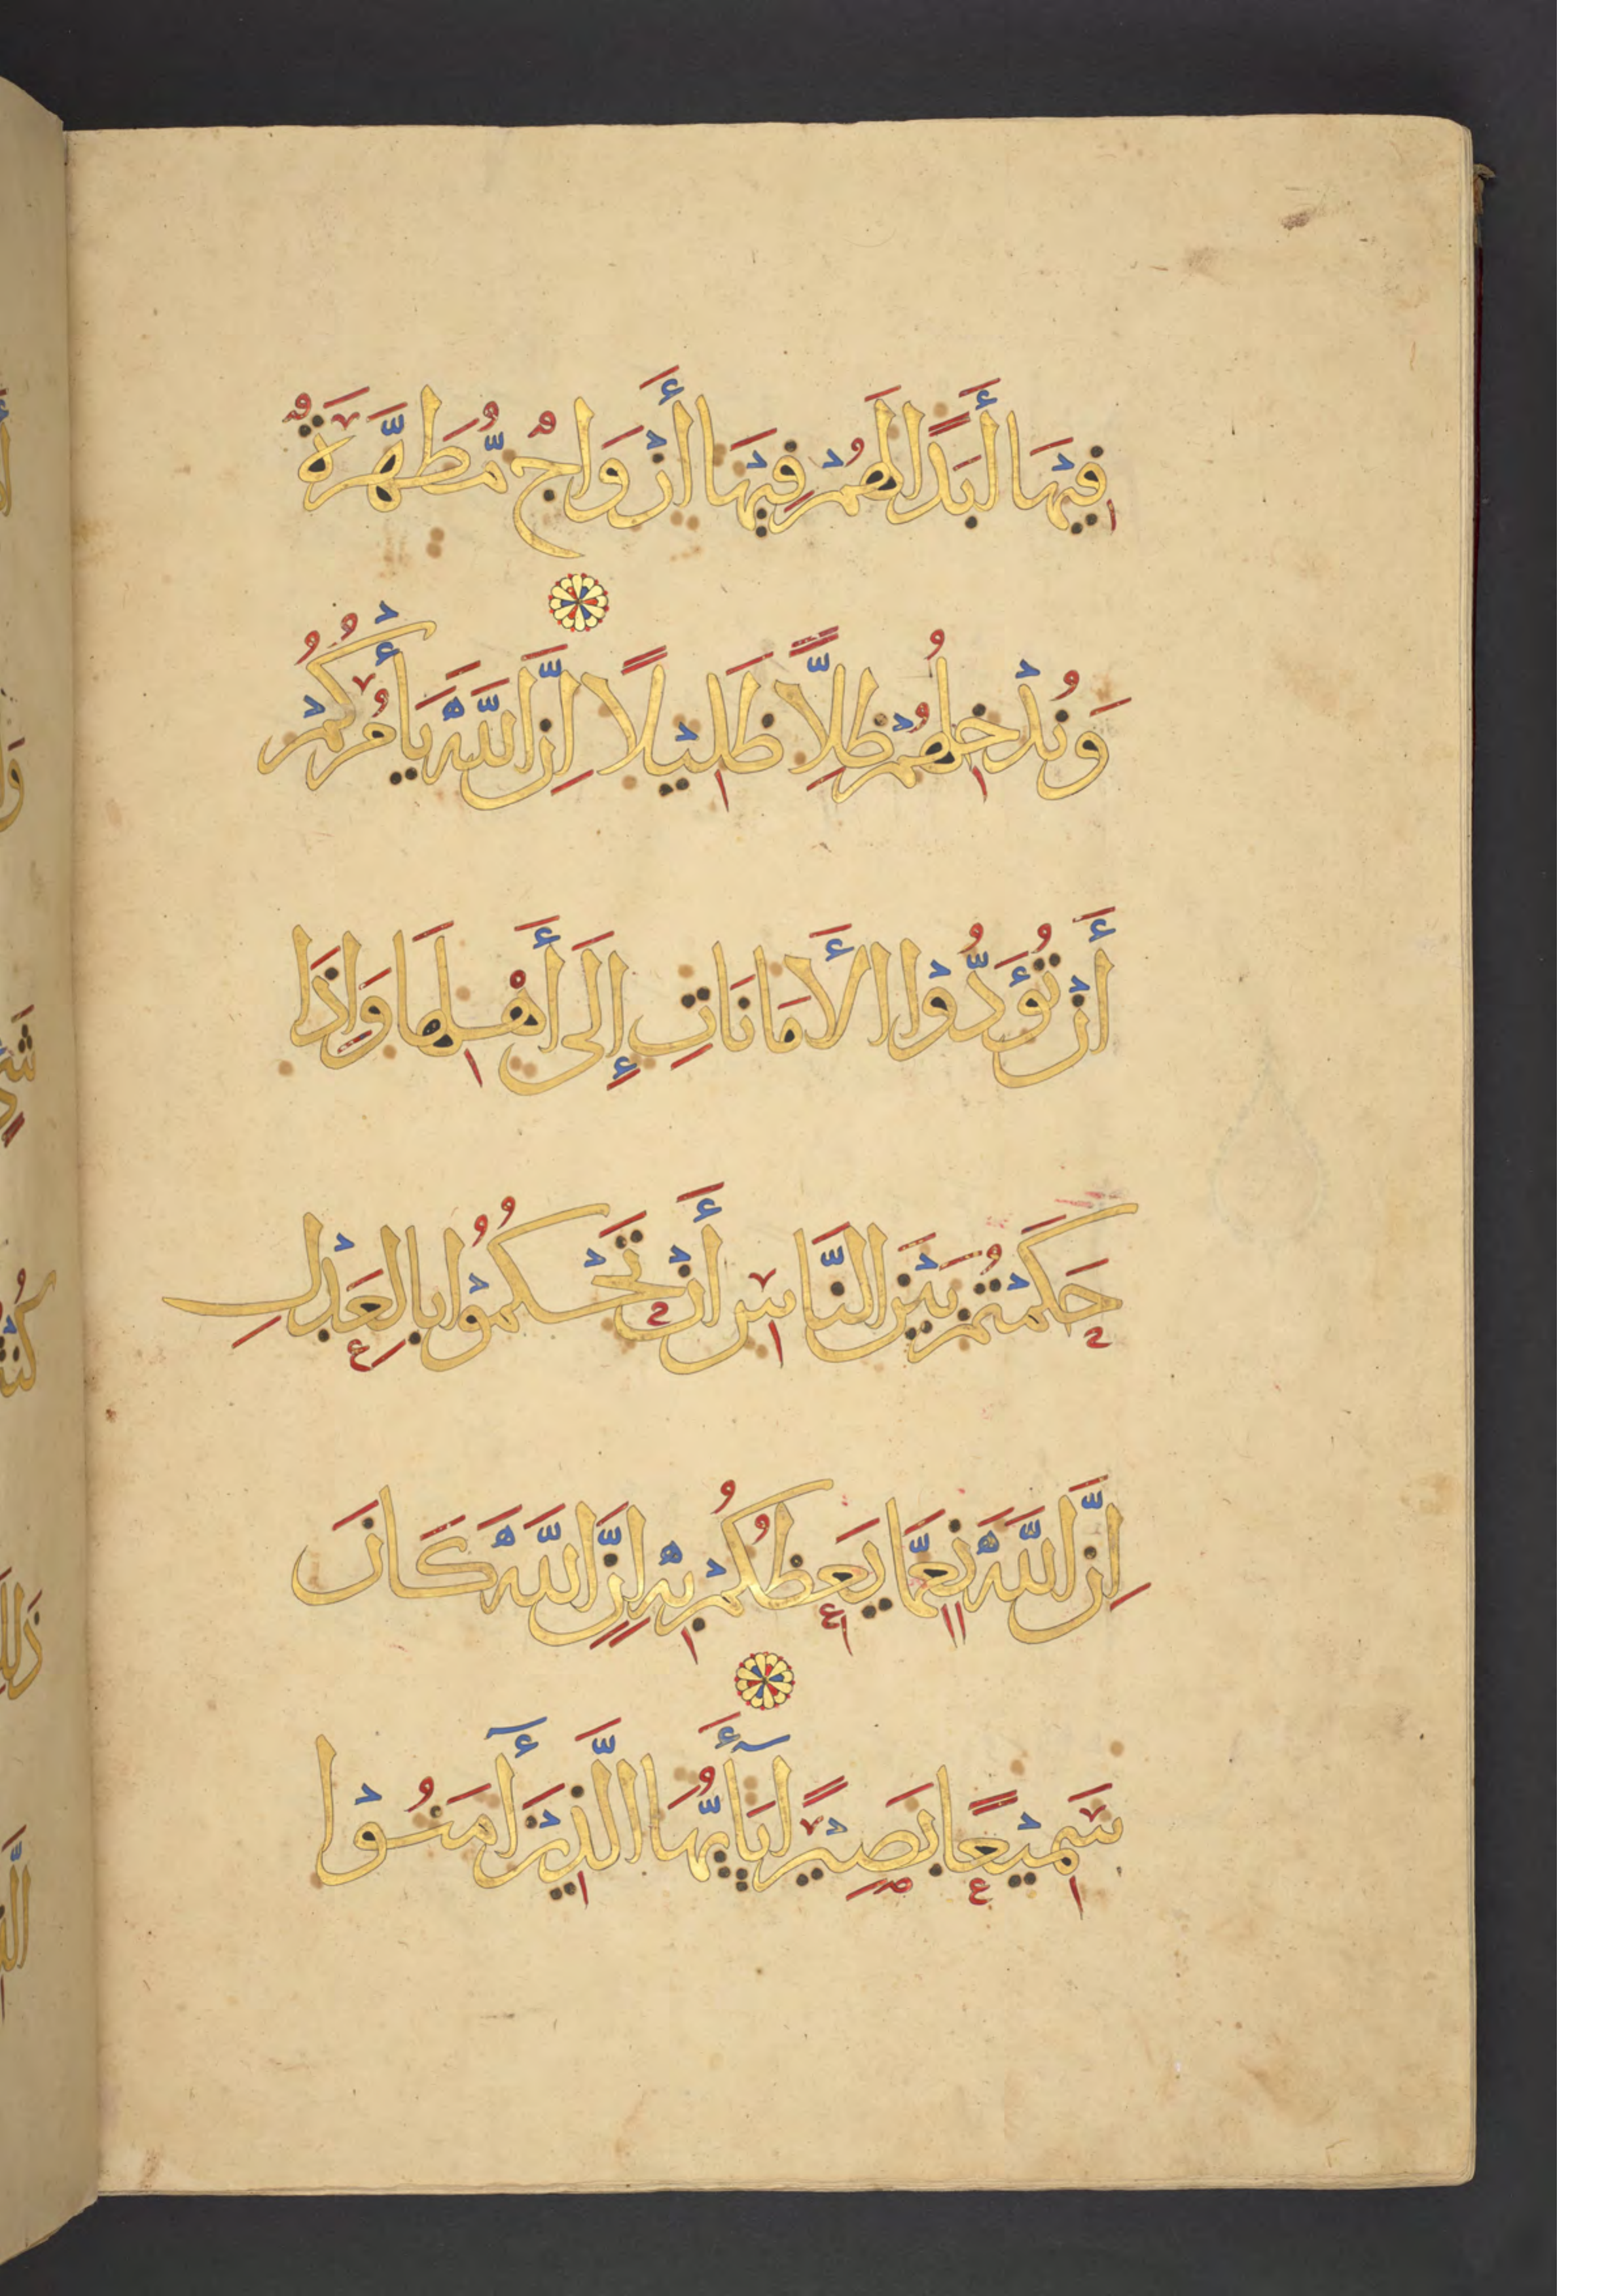 فِيْهَا أَبَدًا لَهُمْ فِيْهَا أَزْوَاجٌ مُّطَهَّرَةٌ
وَنُدْخِلُهُمْ ظِلًّا ظَلِيْلًا إِنَّ اللَّهَ يَأْمُرُكُمْ
أَنْ تُؤَدُّوْا الأَمَانَاتِ إِلَى أَهْلِهَا وَإِذَا
حَكَمْتُمْ بَيْنَ النَّاسِ أَنْ تَحْكُمُوْا بِالعَدْلِ
إِنَّ اللَّهَ نِعِمَّا يَعِظُكُمْ بِهْ إِنَّ اللَّهَ كَانَ
سَمِيْعًا بَصِيْرًا يَآأَيُّهَا الَّذِيْنَ أٓمَنُوْا